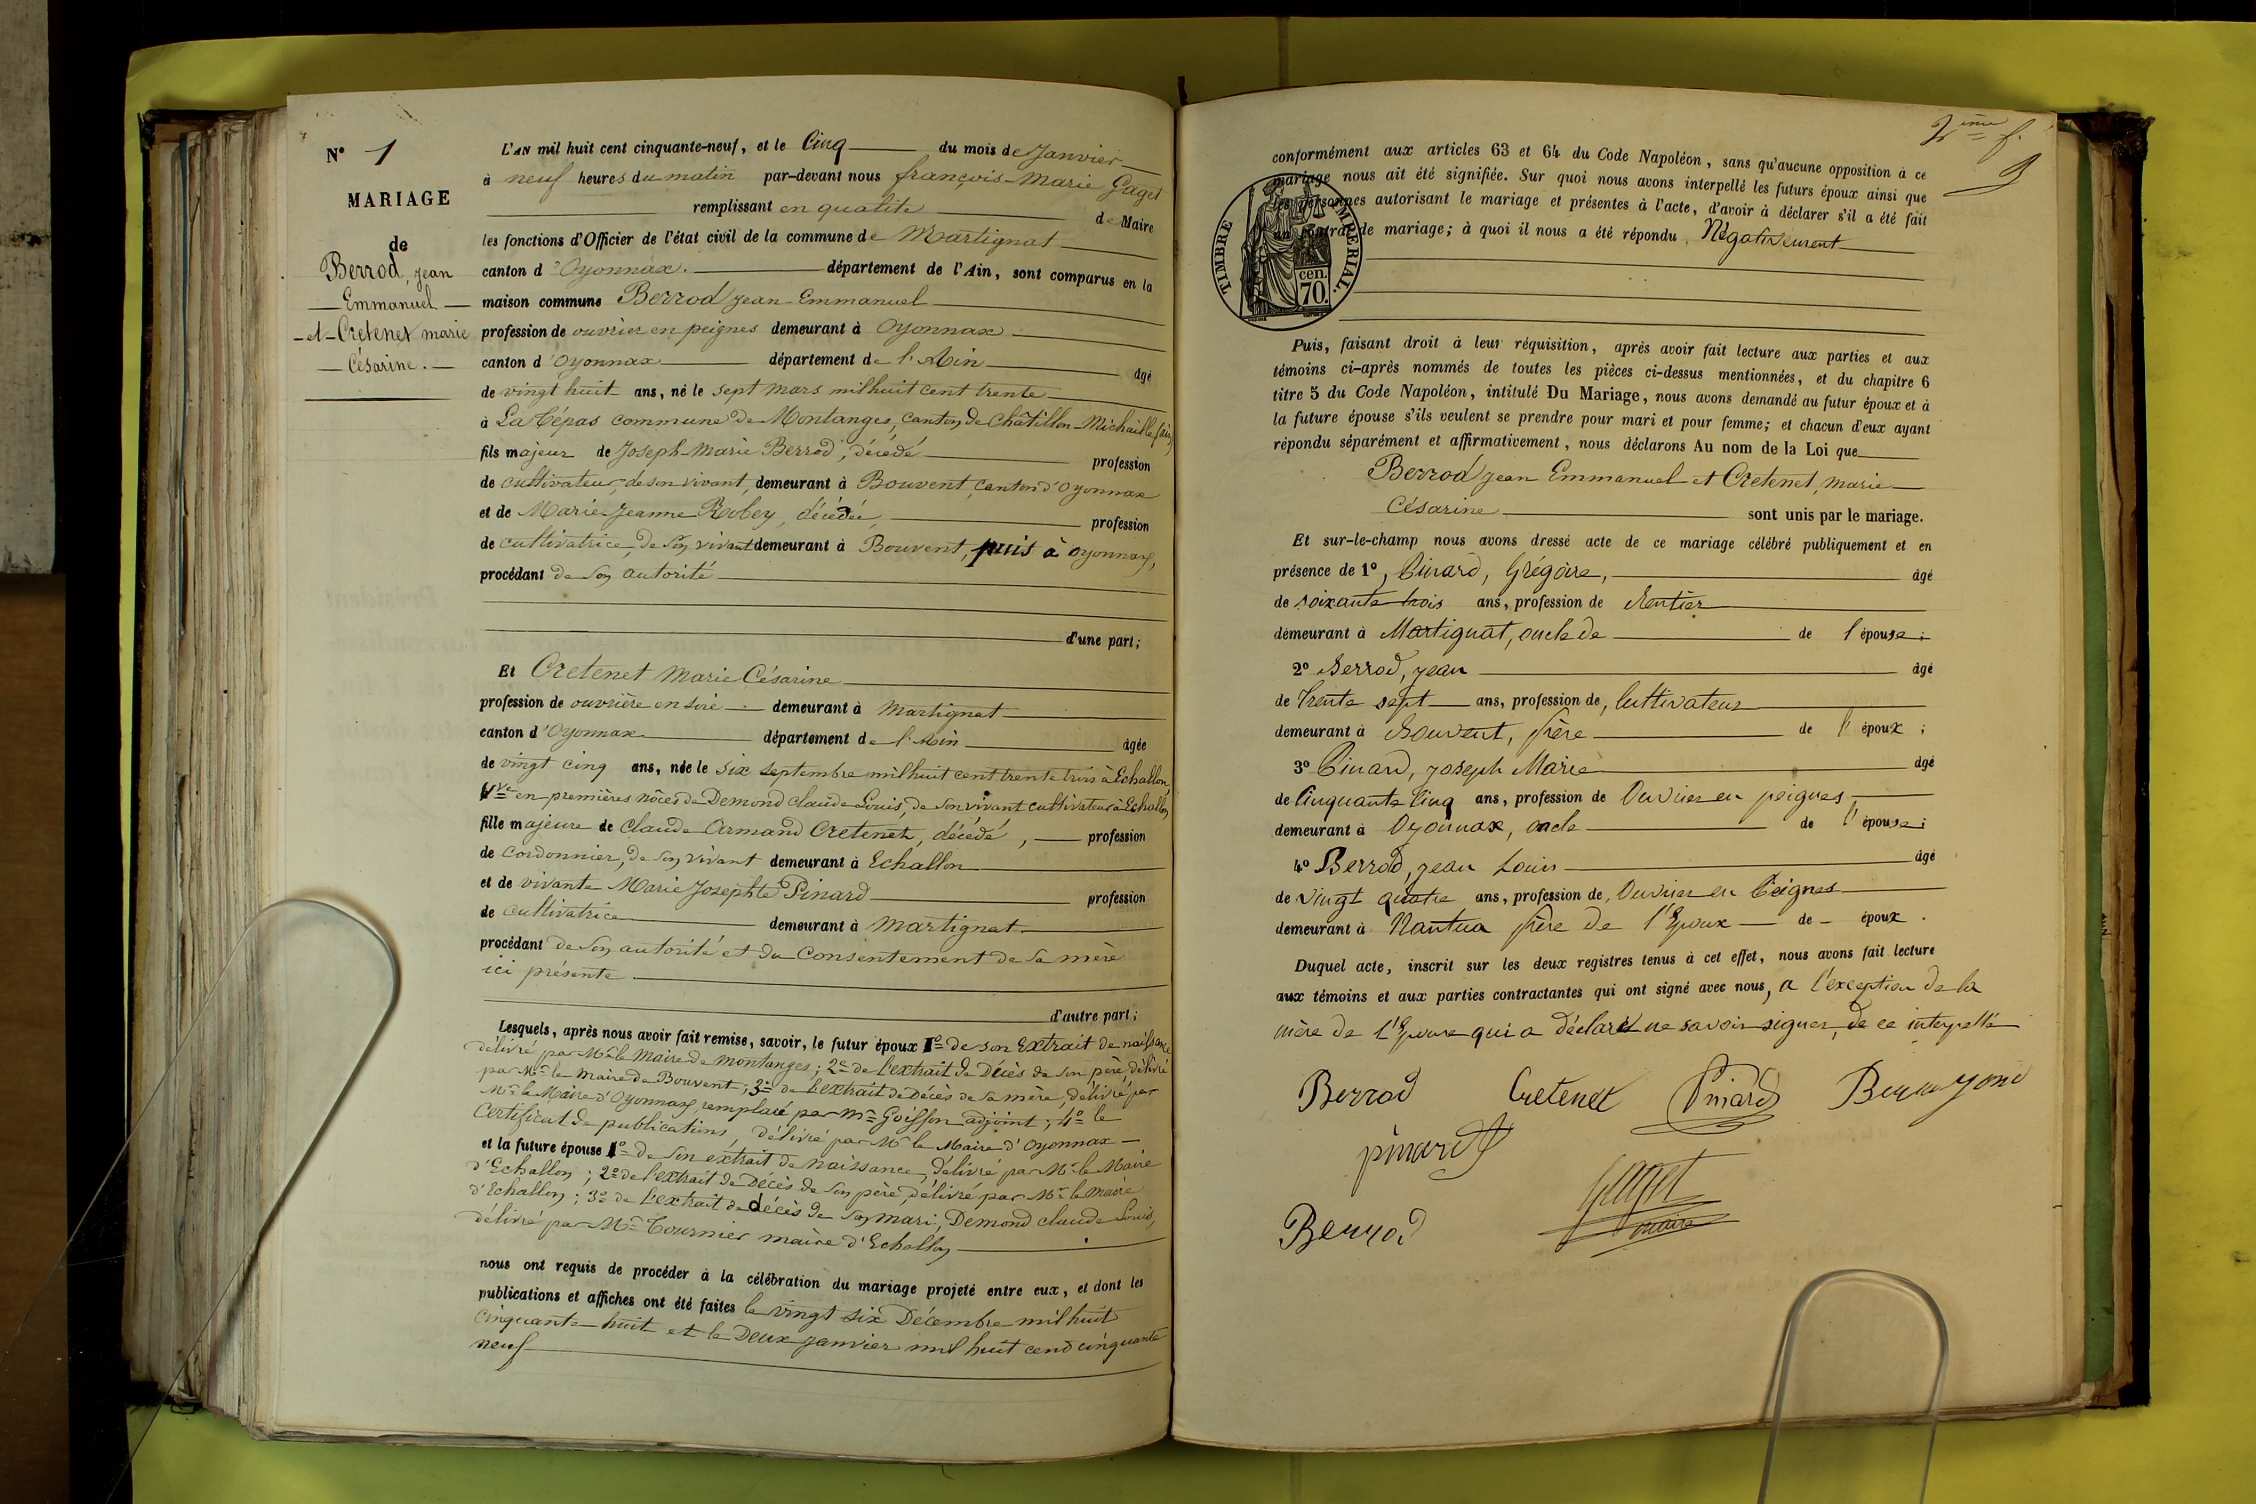 N° 1
MARIAGE
de
Berrod, jean
Emmanuel
et Cretenet marie
Césarine.
L'AN mil huit cent cinquante-neuf, et le Cinq du mois de Janvier
à neuf heures du matin par-devant nous françois-Marie Gaget
remplissant en qualité de Maire
les fonctions d'Officier de l'état civil de la commune de Martignat
canton d'Oyonnax. département de l'Ain, sont comparus en la
maison commune Berrod jean-Emmanuel
profession de ouvrier en peignes demeurant à Oyonnax
canton d'Oyonnax département de l'Ain âgé
de vingt huit ans, né le sept mars mil huit cent trente
à La Cépas commune de Montanges, canton de Châtillon-Michaille (ain)
fils majeur de Joseph-Marie Berrod, décédé profession
de cultivateur, de son vivant, demeurant à Bouvent, canton d'Oyonnax
et de Marie-Jeanne Robey, décédée, profession
de cultivatrice, de son vivant demeurant à Bouvent, puis à Oyonnax,
procédant de son autorité
d'une part;
Et Cretenet Marie Césarine
profession de ouvrière en soie demeurant à Martignat
canton d'Oyonnax département de l'Ain âgée
de vingt cinq ans, née le six septembre mil huit cent trente trois à Echallon,
Vve en premières nôces de Demond claude Louis, de son vivant cultivateur à Echallon
fille majeure de Claude Armand Cretenet, décédé, profession
de cordonnier, de son vivant demeurant à Echallon
et de vivante Marie Josephte Pinard profession
de cultivatrice demeurant à Martignat
procédant de son autorité et du consentement de sa mère
ici présente
d'autre part;
Lesquels, après nous avoir fait remise, savoir, le futur époux 1° de son Extrait de naissance
délivré par Mr le Maire de Montanges; 2° de l'extrait de Décès de son père, délivré
par Mr le Maire de Bouvent; 3° de l'extrait de Décès de sa mère, délivré par
Mr le Maire d'Oyonnax, remplacé par Mr Goiffon adjoint; 4° le
Certificat de publications, délivré par Mr le Maire d'Oyonnax
et la future épouse 1° de son extrait de naissance, délivré par Mr le Maire
d'Echallon; 2° de l'extrait de Décès de son père, délivré par Mr le maire
d'Echallon; 3° de l'extrait de décès de son mari, Demond claude Louis,
délivré par Mr Tournier maire d'Echallon
nous ont requis de procéder à la célébration du mariage projeté entre eux, et dont les
publications et affiches ont été faites le vingt six Décembre mil huit
cinquante-huit et le Deux janvier mil huit cent cinquante
neuf
2ème f.
conformément aux articles 63 et 64 du Code Napoléon, sans qu'aucune opposition à ce
mariage nous ait été signifiée. Sur quoi nous avons interpellé les futurs époux ainsi que
les personnes autorisant le mariage et présentes à l'acte, d'avoir à déclarer s'il a été fait
un contrat de mariage; à quoi il nous a été répondu Négativement
TIMBRE IMPERIAL.
cen.
70.
Puis, faisant droit à leur réquisition, après avoir fait lecture aux parties et aux
témoins ci-après nommés de toutes les pièces ci-dessus mentionnées, et du chapitre 6
titre 5 du Code Napoléon, intitulé Du Mariage, nous avons demandé au futur époux et à
la future épouse s'ils veulent se prendre pour mari et pour femme; et chacun d'eux ayant
répondu séparément et affirmativement, nous déclarons Au nom de la Loi que
Berrod jean Emmanuel et Cretenet, marie
Césarine sont unis par le mariage.
Et sur-le-champ nous avons dressé acte de ce mariage célébré publiquement et en
présence de 1°, Pinard, Grégoire, âgé
de soixante trois ans, profession de Rentier
demeurant à Martignat, oncle de de l'épouse;
2° Berrod, jean âgé
de trente sept ans, profession de, Cultivateur
demeurant à Bouvent, frère de l'époux;
3° Pinard, joseph Marie âgé
de Cinquante Cinq ans, profession de Ouvrier en peignes
demeurant à Oyonnax, oncle de l'épouse;
4° Berrod, jean Louis âgé
de vingt quatre ans, profession de, Ouvrier en Peignes
demeurant à Nantua frère de l'Epoux de époux.
Duquel acte, inscrit sur les deux registres tenus à cet effet, nous avons fait lecture
aux témoins et aux parties contractantes qui ont signé avec nous, a l'exception de la
mère de l'Epouse qui a déclaré ne savoir signer, de ce interpellé
Berrod Cretenet Pinard
pinard
Gaget
maire
Berrod